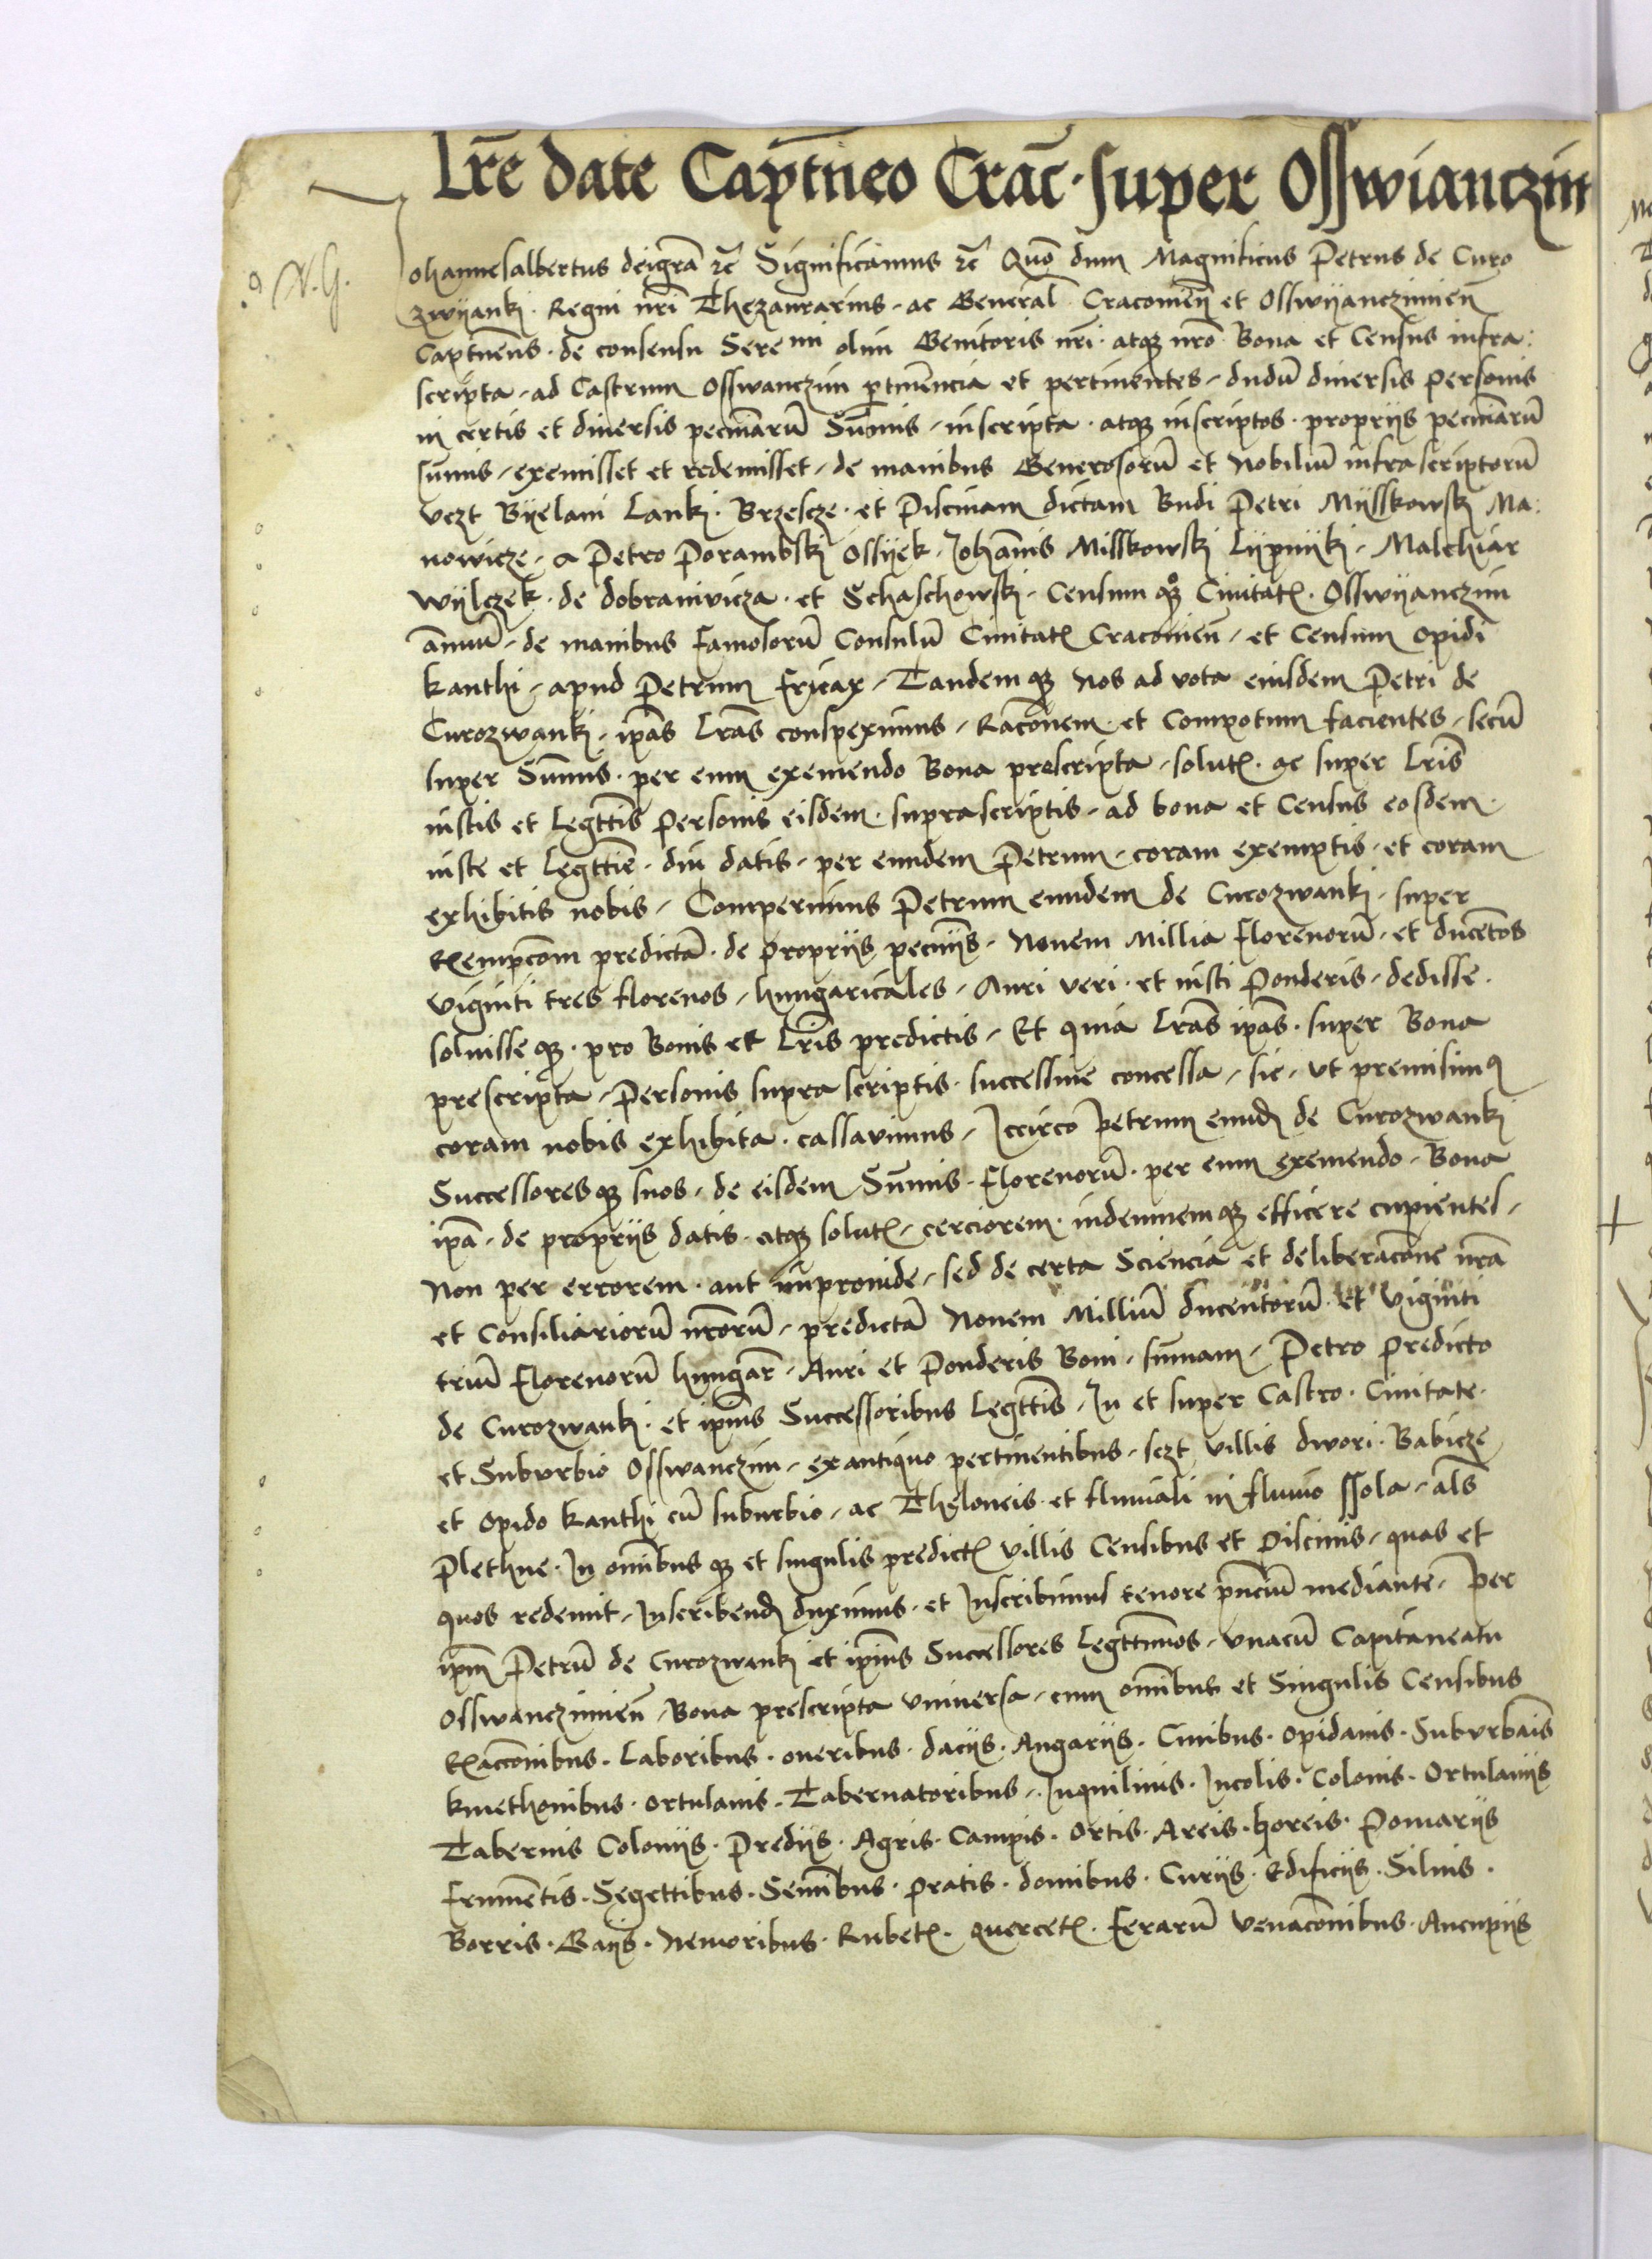 Lr̃e date Cap̃tneo Crac̃. super Osswianczim
N. G.
Johannesalbertus deigrã ꝛc̃ Significamus ꝛc̃ Quõ dum Magnificus Petrus de Curo
zwyanki. Regni nr̃i Thezaurarius. ac General Cracovieñ et Osswyanczimieñ
Captneus. de consensu Sere mi olim Genitoris nr̃i. atqȝ nr̃o Bona et Census infra:
scripta. ad Castrum Osswanczim ptinencia et pertinentes. dudũ diuersis personis
in certis et diuersis pecuniarũ Sum̃is. inscripta. atqȝ inscriptos. proprijs pecuniarũ
sum̃is. exemisset et redemisset. de manibus Generosorũ et Nobiliũ infrascriptorũ
vczt Byelani Lanki. Brzescze. et Piscinam dictam Budi Petri Mysskowski Ma:
nowicze. a Petro Porambski Ossyek. Johãnis Misskowski Lypnyki. Malchiar
Wylczek. de dobranivicza. et Schaschowski. Censum qȝ Ciuitatꝭ. Osswyanczim
ãnuũ. de manibus Famosorũ Consulũ Ciuitatꝭ Cracovieñ. et Censum Opidi
Kanthi. apud Petrum Fricax. Tandem qȝ Nos ad vota eiusdem Petri de
Curozwanki. ip̃as Lr̃as conspeximus. Racõnem et Compotum facientes. secũ
super Sum̃is. per eum exemendo Bona prescripta. solutꝭ. ac super Lr̃is
iustis et Legtt̃is Personis eisdem. suprascriptis. ad bona et Census eosdem.
iuste et Legtt̃ie. diu datis. per eundem Petrum. coram exemptis. et coram
exhibitis nobis. Comperimus Petrum eundem de Curozwanki. super
Exempcõm predictã. de proprijs pecunijs. Nouem Millia Florenorũ. et ducẽtos
viginti tres florenos. hungaricales. Auri veri. et iusti Ponderis. dedisse.
soluisse qȝ. pro Bonis et Lr̃is predictis. Et quia Lr̃as ip̃as. super Bona
prescripta. Personis supra scriptis. successiue concessa. sic. vt premisimꝰ
coram nobis exhibita. cassavimus. Iccirco Petrum eund̃ de Curozwanki
Successores qȝ suos. de eisdem Sum̃is. Florenorũ. per eum exemendo. Bona
ip̃a. de proprijs datis. atqȝ solutꝭ. cerciorem. indemnem qȝ efficere cupientes.
Non per errorem. aut improuide. sed de certa Sciencia et deliberacõne nr̃a
et Consiliariorũ nr̃orũ. predictã Nouem Milliũ ducentorũ. et viginti
triũ Florenorũ hungar̃. Auri et Ponderis Boni. sum̃am. Petro Predicto
de Curozwanki. et ip̃ius Successoribus Legtt̃is. In et super Castro. Ciuitate.
et Suburbio Osswanczim. exantiquo pertinentibus. sczt villis dwori. Babicze
et opido Kanthi cũ suburbio. ac Theloneis. et fluuiali in fluuio Ssola. als̃
Plethne. In om̃ibus qȝ et singulis predictꝭ villis Censibus et Piscinis. quas et
quos redemit. Inscribend̃ duximus. et Inscribimus tenore pñciũ mediante. Per
ip̃m Petrũ de Curozwanki et ip̃ius Successores Legttimos. vnacũ Capitaneatu
Osswanczimieñ. Bona prescripta vniuersa. cum om̃ibus et Singulis Censibus
Exaccõnibus. Laboribus. oneribus. dacijs. Angarijs. Ciuibus. Opidanis. Suburbãis
Kmethonibus. ortulanis. Tabernatoribus. Inquilinis. Incolis. Colonis. Ortulanijs
Tabernis Colonijs. Predijs. Agris. Campis. Ortis. Areis. horeis. Pomarijs
Frumẽtis. Segettibus. Semĩbus. Pratis. domibus. Curijs. Edificijs. Siluis.
Borris. Gaijs. Nemoribus. Rubetꝭ. Quercetꝭ. Ferarũ Venacõnibus. Aucupijs